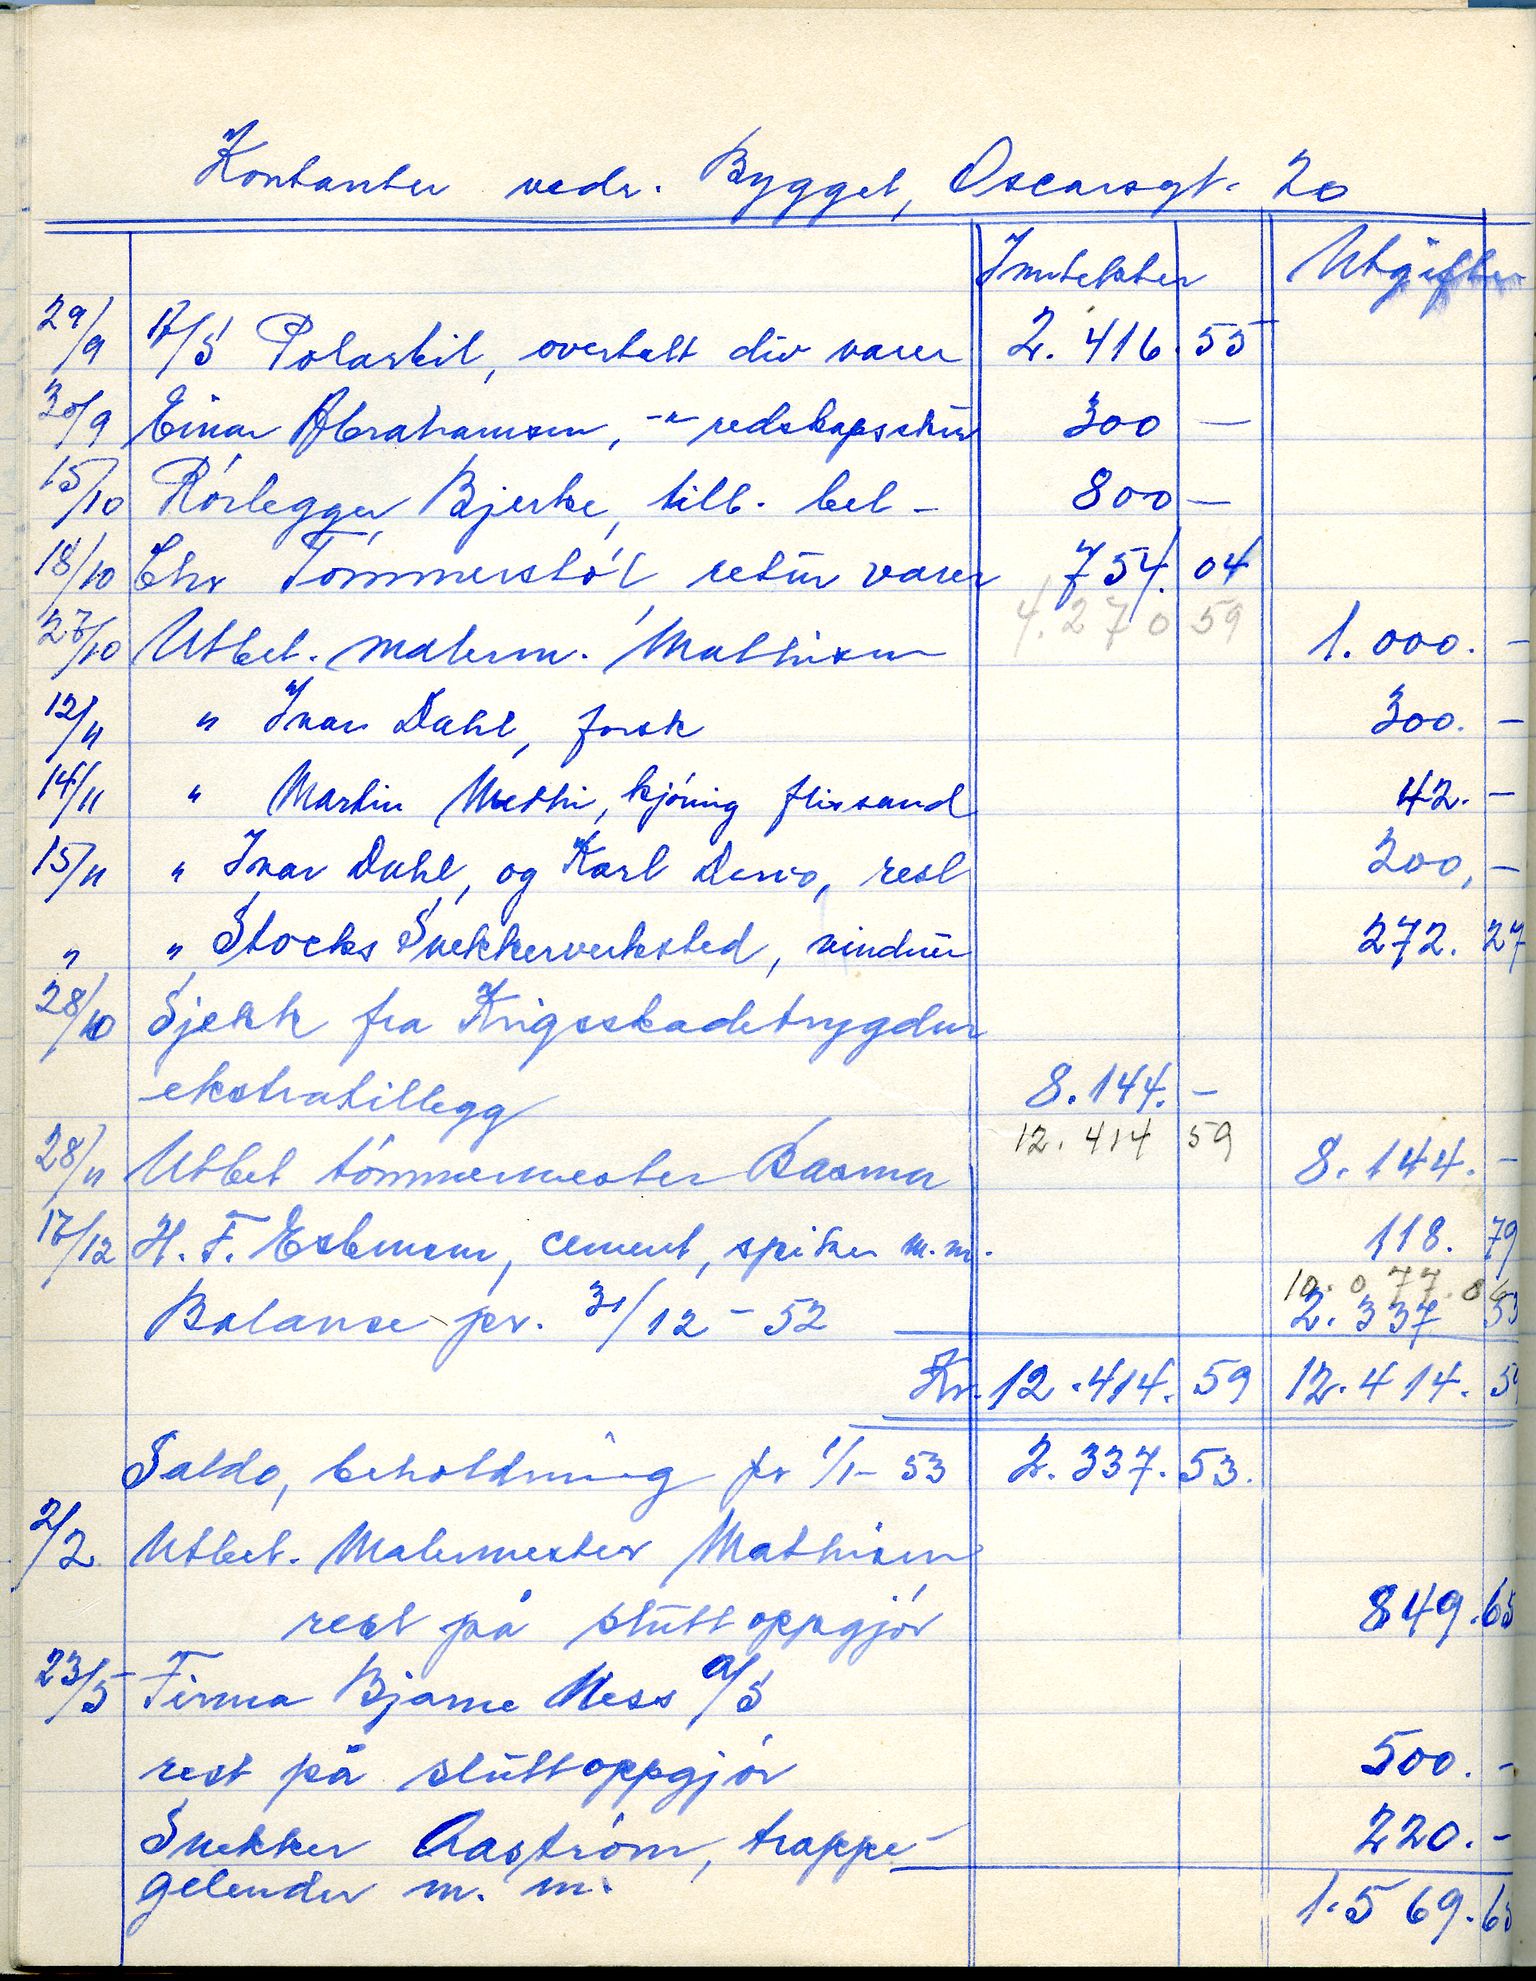 Kontanter vedr. Bygget, Oscarsgt. 20
Inntekter Utgifter
29/9 A/S Polarbil, overtatt div varer 2.416.55
30/9 Einar Abrahamsen, -"- redskapsskur 300 —
15/10 Rörlegger Bjerke, tilb. bel - 800 —
18/10 Chr Tömmerstöl retur varer 754.04
4.270 59
27/10 Utbet. malerm. Mathisen 1.000. -
12/11 " Ivar Dahl, forsk 300. -
14/11 " Martin Methi, kjöring flissand 42. -
15/11 " Ivar Dahl, og Karl, rest 200, -
" " Stocks Snekkerverksted, vinduer 272. 27
28/10 Sjekk fra Krigsskadetrygden
ekstratillegg 8.144. -
12.414 59
28/11 Utbet tömmermester Basma 8.144. -
17/12 H. F. Esbensen, cement, spiker m.m. 118. 79
10.077.06
Balanse pr. 31/12 - 52 2.337 53
Kr. 12.414. 59 12.414. 59
Saldo, beholdning pr 1/1- 53 2.337. 53.
2/2 Utbet. Malermester Mathisen
rest på sluttoppgjör 849.65
23/5 Firma Bjarne Ness A/S
rest på sluttoppgjör 500. -
Snekker Aaström, trappe- 220. -
gelender m. m.
1.569.65